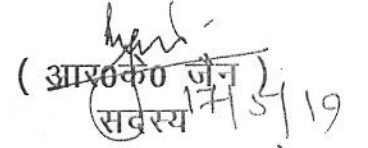 ( आर0के0 जैन )
सदस्य 17/5/19